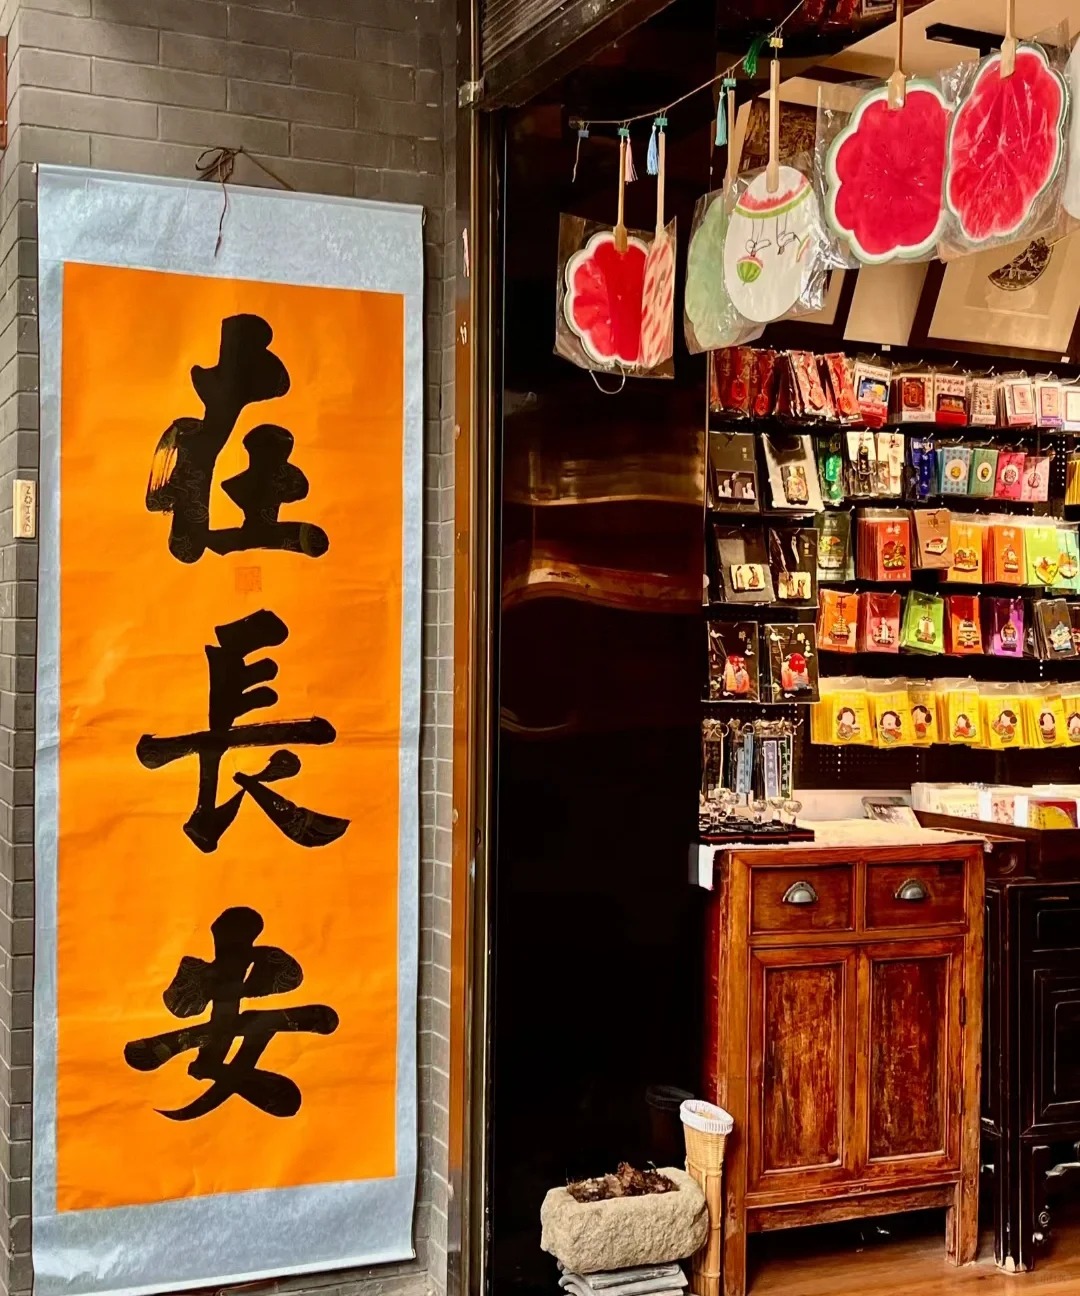 在長安